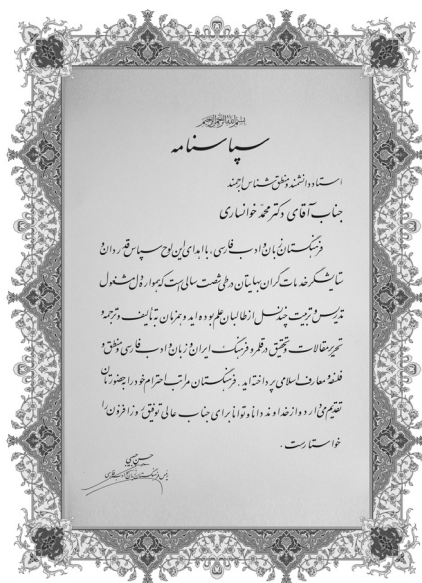 بسم الله الرحمن الرحیم
سپاسنامه
استاد دانشمند و منطق شناس ارجمند
جناب آقای دکتر محمد خوانساری
فرهنگستان زبان و ادب فارسی، با اهدای این لوح سپاس قدردان و
ستایشگر خدمات گران بهایتان در طی شصت سالی است که همواره دل مشغول
تدریس و تربیت چند نسل از طالبان علم بوده اید و همزمان به تألیف و ترجمه و
تحریر مقالات و تحقیق در قلمرو فرهنگ ایران و زبان و ادب فارسی و منطق و
فلسفه و معارف اسلامی پرداخته اید. فرهنگستان مراتب احترام خود را به حضورتان
تقدیم می دارد و از خداوند دانا و توانا برای جناب عالی توفیق روزافزون را
خواستار است.
حسن حبیبی
رئیس فرهنگستان زبان و ادب فارسی